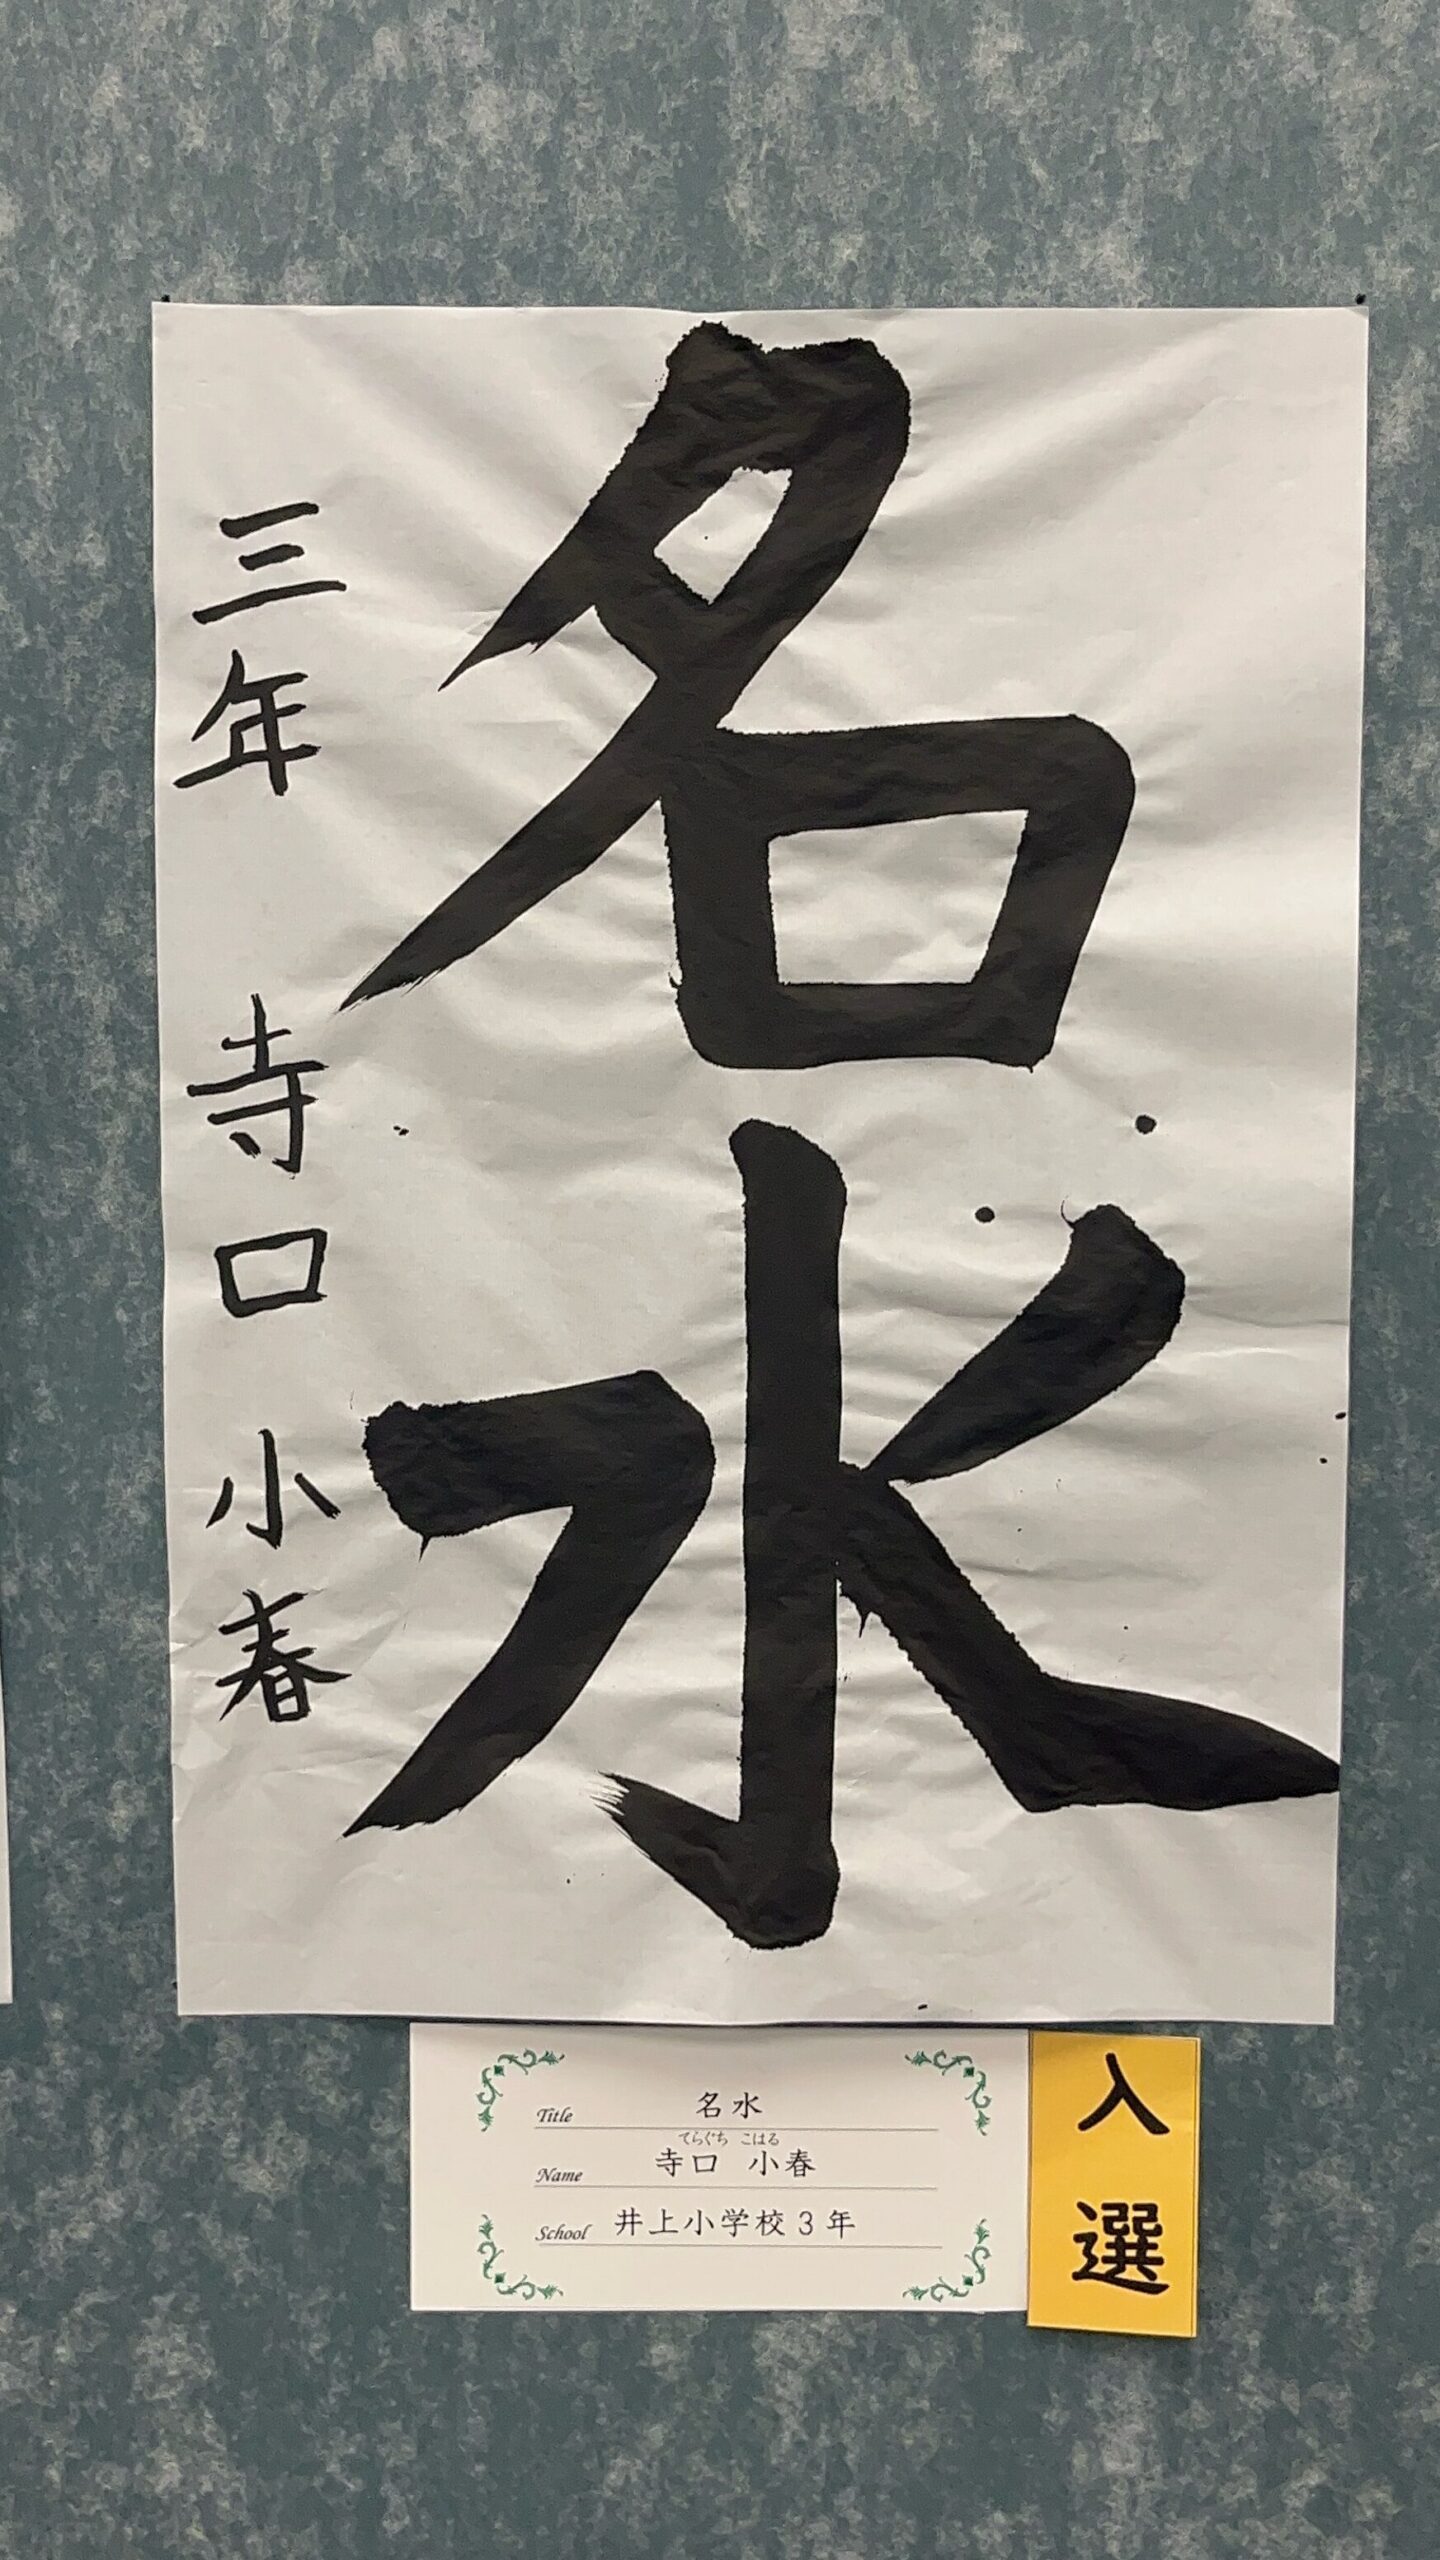 名水
三年 寺口小春
Title 名水
てらぐち こはる
Name 寺口 小春
School 井上小学校3年
入選